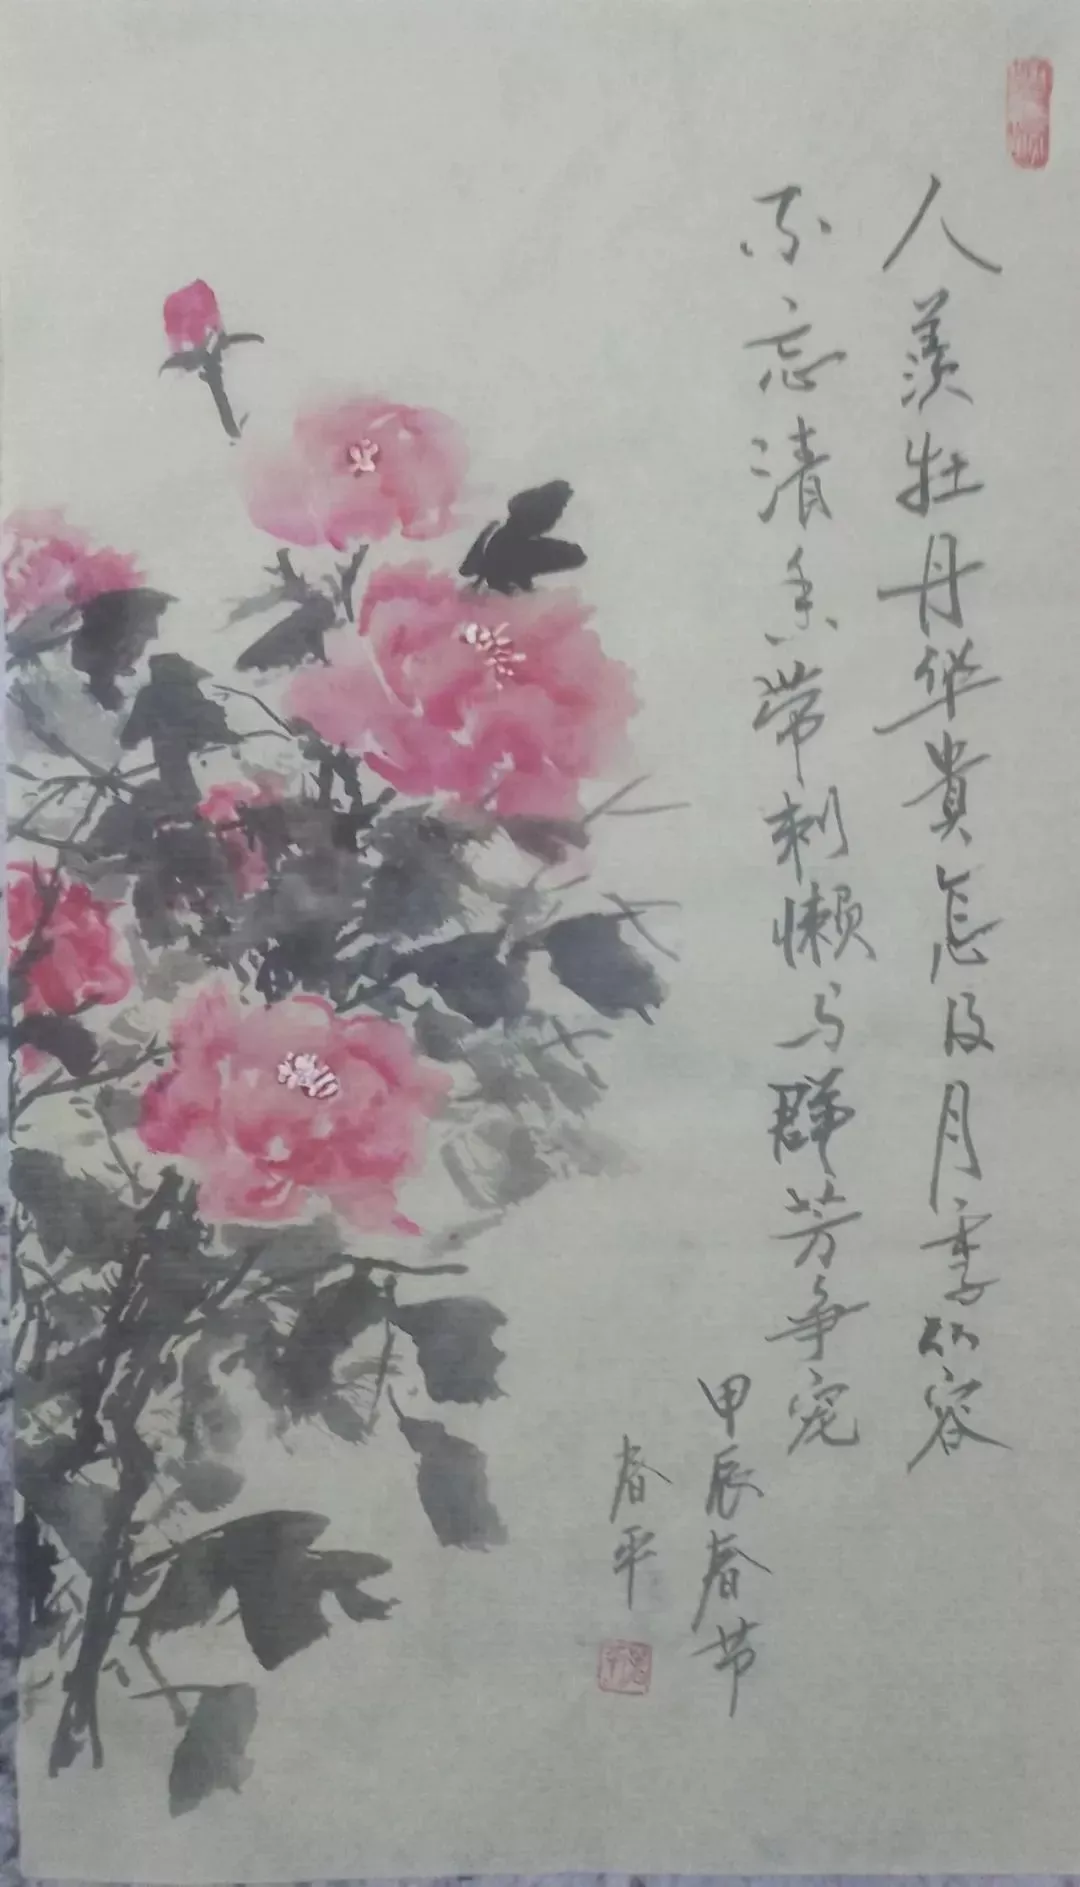 人羡牡丹华贵怎及月季仙容
不忘清香带刺懒与群芳争宠
甲辰春节
春平